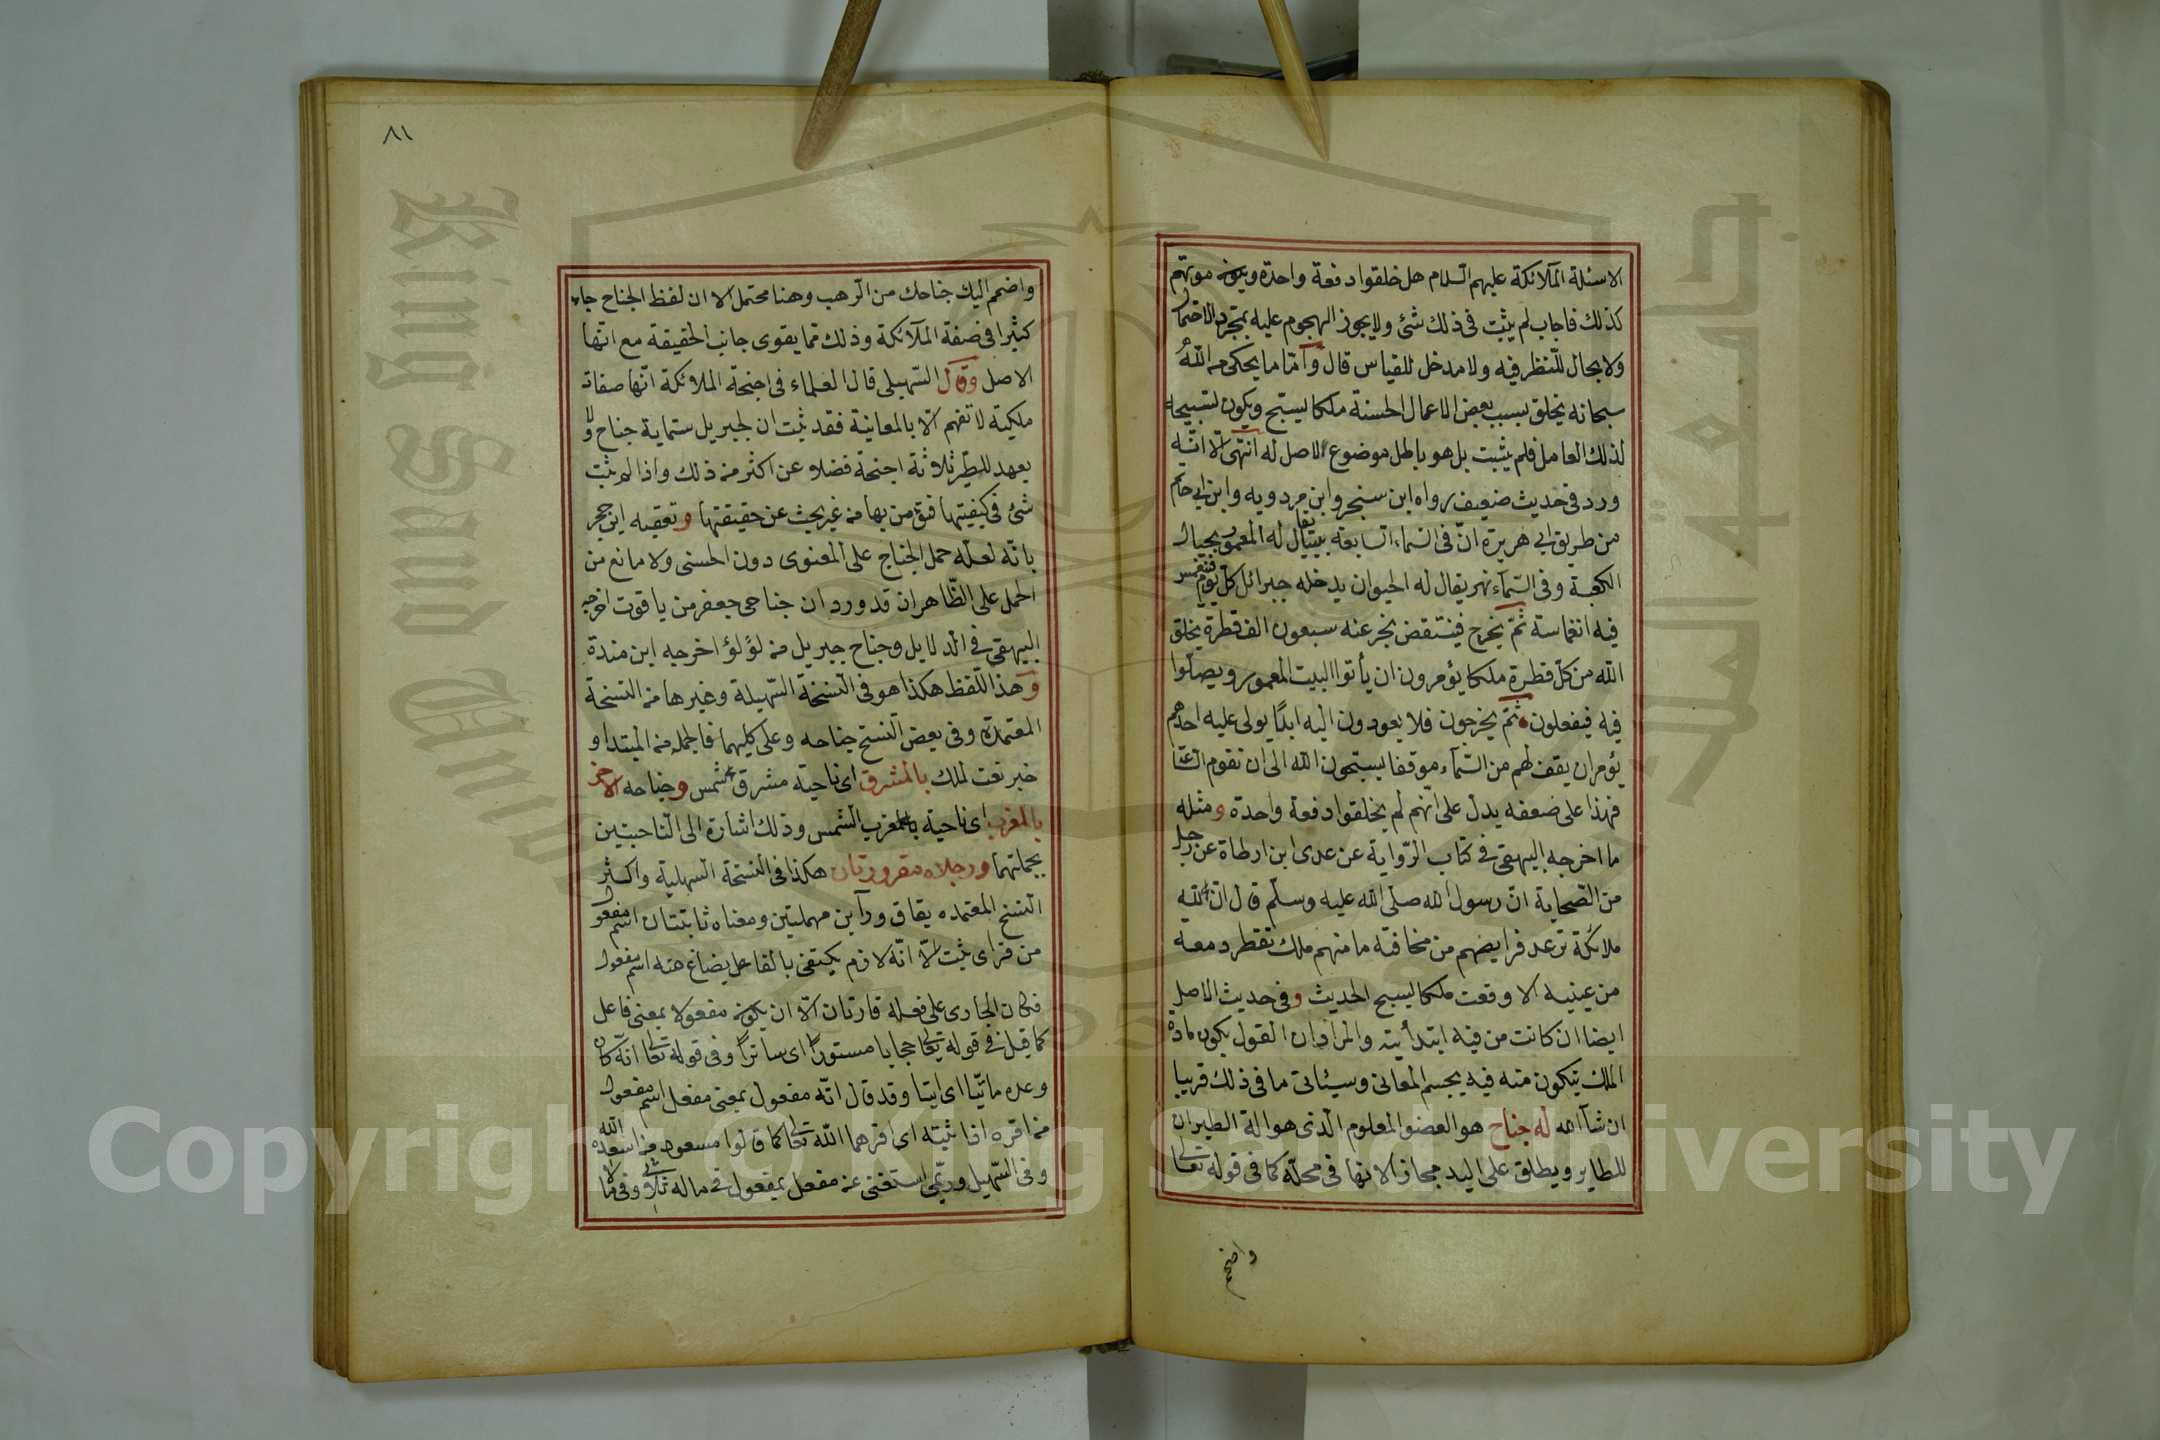 الاسئلة الملآئكة عليهم السلام هل خلقوا دفعة واحدة ويكونه موتهم
كذلك فاجاب لم يثبت فى ذلك شئ ولا يجوز الهجوم عليه بمجرد الاحتمال
ولا مجال للنظر فيه ولا مدخل للقياس قال وامّا ما يحكى من الله
سبحانه يخلق بسبب بعض الاعمال الحسنة ملكا يسبّح ويكون تسبيحه
لذلك العامل فلم يثبت بل هو باطل موضوع لا اصل له انتهى الّا انّه
ورد فى حديث ضعيف رواه ابن سنجر وابن مردويه وابن ابى حاتم
من طريق ابى هريرة انّ فى السّماء السّابعة بيتا يقال له المعمور بحيال
الكعبة وفى السّمآء نهر يقال له الحيوان يدخله جبرائل كلّ يوم فينغمس
فيه انغماسة ثمّ يخرج فينتفض يخر عنه سبعون الف قطرة يخلق
الله من كلّ قطرة ملكا يؤمرون ان يأتوا البيت المعمور ويصلّوا
فيه فيفعلون ثمّ يخرجون فلا يعودون اليه ابدًا يولى عليه احدهم
يؤمر ان يقف لهم من السّمآء موقفا يسبّحون الله الى ان تقوم السّاعة
فهذا على ضعفه يدلّ على انّهم لم يخلقوا دفعة واحدة ومثله
ما اخرجه البيهقى فى كتاب الرّواية عن عدى ابن ارطاة عن رجل
من الصّحابة انّ رسول الله صلى الله عليه وسلّم قال انّ لله
ملائكة ترعد فرايصهم من مخافته ما منهم ملك تقطر دمعة
من عينيه الا وقعت ملكا يسبح الحديث وفى حديث الاصل
ايضا ان كانت من فيه ابتدأيته والمراد ان القول يكون مادة
الملك يتكون منه فيه يجسم المعانى وسيئاتى ما فى ذلك قريبا
ان شآ الله له جناح هو العضو المعلوم الّذى هو الة الطيران
للطاير ويطلق على اليد مجازا لانها فى محلّه كما فى قوله تعالى
واضمم
٨١
واضمم اليك جناحك من الرّهب وهنا محتمل الا ان لفظ الجناح جاء
كثيرا فى صفة الملآئكة وذلك ممّا يقوى جانب الحقيقة مع انّها
الاصل وقال السّهيلى قال العلماء فى اجنحة الملائكة انّها صفات
ملكيّة لا تفهم الّا بالمعاينة فقد ثبت ان لجبريل ستماية جناح ولا
يعهد للطّير ثلاثة اجنحة فضلا عن اكثر من ذلك واذا لم يثبت
شئ فى كيفيّتها فنؤمن بها من غير بحث عن حقيقتها وتعقبه ابن حجر
بانّه لعلّه حمل الجناح على المعنوى دون الحسّى ولا مانع من
الحمل على الظّاهر ان قد ورد ان جناحى جعفر من ياقوت اخرجه
البيهقى فى الدّلايل وجناح جبريل من لؤلؤ اخرجه ابن مندة
وهذا اللّفظ هكذا هو فى النّسخة السّهيلة وغيرها من النّسخة
المعتمدة وفى بعض النّسخ جناحه وعلى كليهما فالجملة من المبتداو
خبر نعت لملك بالمشرق اى ناحية مشرق الشمس وجناحه الاخر
بالمغرب اى ناحية بالمغرب الشّمس وذلك اشارة الى النّاحيتين
بجملتهما ورجلاه مقرورتان هكذا فى النّسخة السّهلية واكثر
النّسخ المعتمده بقاف ورآين مهملتين ومعناه ثابتتان اسم مفعول
من قرّ اى ثبت الّا انّه لازم يكتفى بالفاعل يضاغ منه اسم مفعول
فكان الجارى على فعله قارتان الّا ان يكونه مفعولا بمعنى فاعل
كما قيل فى قوله تعالى حجابا مستورًا اى ساترًا وفى قوله تعالى انّه كان
وعده ماتيّا اى اتيا وقد قال انّه مفعول بمعنى مفعل اسم مفعول
من اقره اذا ثبته اى اقرهما الله تعالى كما قالوا مسعود من اسعده الله
وفى السّهيل وربّما استغنى عنه مفعل بمفعول فى ماله ثلاثى وفى ما لا